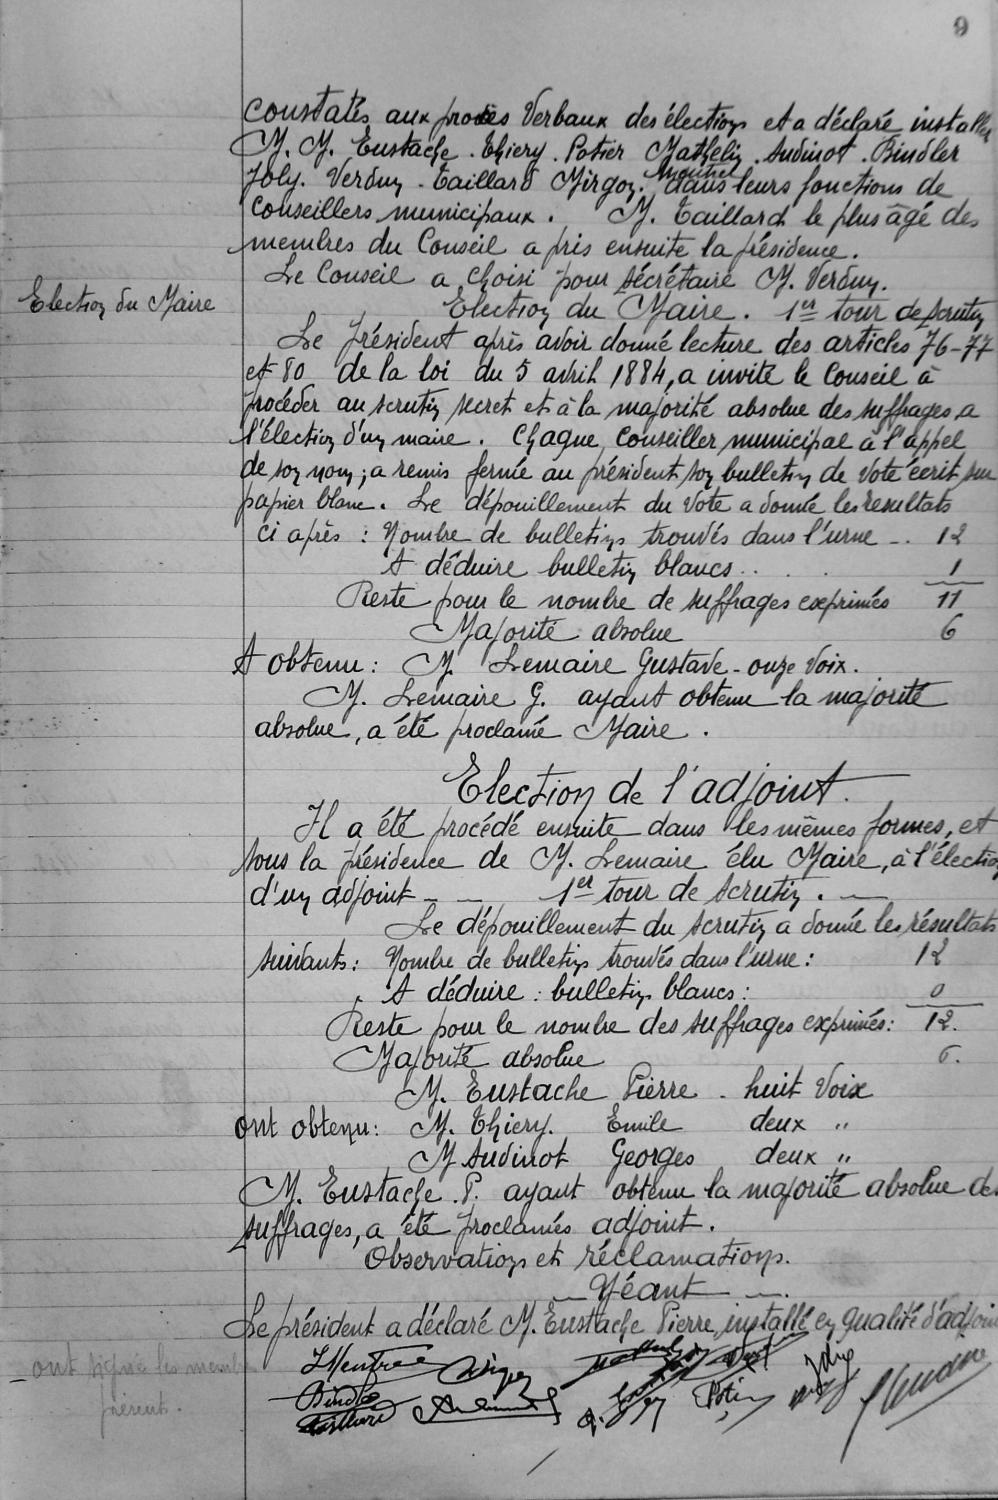 9
constatés aux procès Verbaux des élections et a déclaré installer
M. M. Eustache . Thiery . Potier Mathelin . Audinot . Bindler
Joly . Verdun - Taillard Mirgon . dans leurs fonctions de
conseillers municipaux . M. Taillard le plus âgé des
membres du Conseil a pris ensuite la présidence .
Le Conseil a choisi pour sécrétaire M. Verdun.
Election du Maire
Election du Maire . 1er tour de scrutin
Le Président après avoir donné lecture des articles 76-77
et 80 de la loi du 5 avril 1884, a invité le Conseil à
procéder au scrutin secret et à la majorité absolue des suffrages, a
l'élection d'un maire . Chaque conseiller municipal à l'appel
de son nom, a remis fermé au président son bulletin de vote écrit sur
papier blanc . Le dépouillement du vote a donné les resultats
ci après : Nombre de bulletins trouvés dans l'urne - . 12
A déduire bulletin blancs . . . . 1
Reste pour le nombre de suffrages exprimés 11
Majorité absolue 6
A obtenu : M. Lemaire Gustave - onze voix .
M. Lemaire G. ayant obtenu la majorité
absolue, a été proclamé Maire .
Election de l'adjoint .
Il a été procédé ensuite dans les mêmes formes, et
sous la présidence de M. Lemaire élu Maire, à l'élection
d'un adjoint - - 1er tour de scrutin . -
Le dépouillement du scrutin a donné les résultats
suivants : Nombre de bulletins trouvés dans l'urne : 12
A déduire : bulletins blancs : 0
Reste pour le nombre des suffrages exprimés : 12.
Majorité absolue 6.
M. Eustache Pierre - huit voix
ont obtenu : M. Thiery. Emile deux "
M Audinot Georges deux "
M. Eustache . P. ayant obtenu la majorité absolue des
suffrages, a été proclamés adjoint .
Observations et réclamations .
- Néant - .
Le président a déclaré M. Eustache Pierre, installé en qualité d'adjoint
ont signé les membres
présent .
Bindler
Taillard
Potier
Joly
Audinot